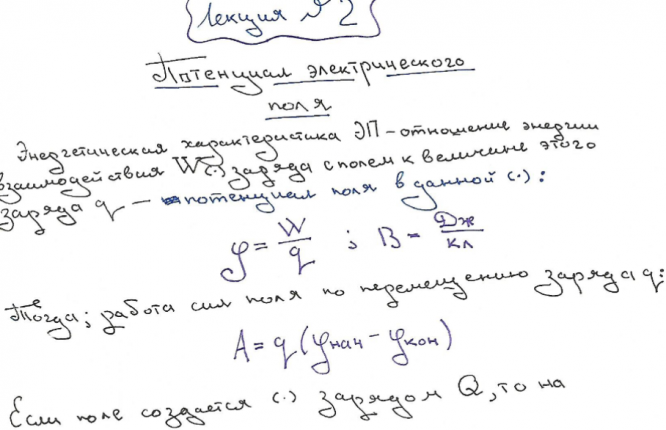 Лекция №2
Потенциал электрического
поля
Энергетическая характеристика ЭП – отношение энергии
взаимодействия W (·) заряда с полем к величине этого
заряда q – потенциал поля в данной (·):
φ = W/q ; В = Дж/Кл
Тогда; работа сил поля по перемещению заряда q:
A = q(φнач – φкон)
Если поле создается (·) зарядом Q, то на